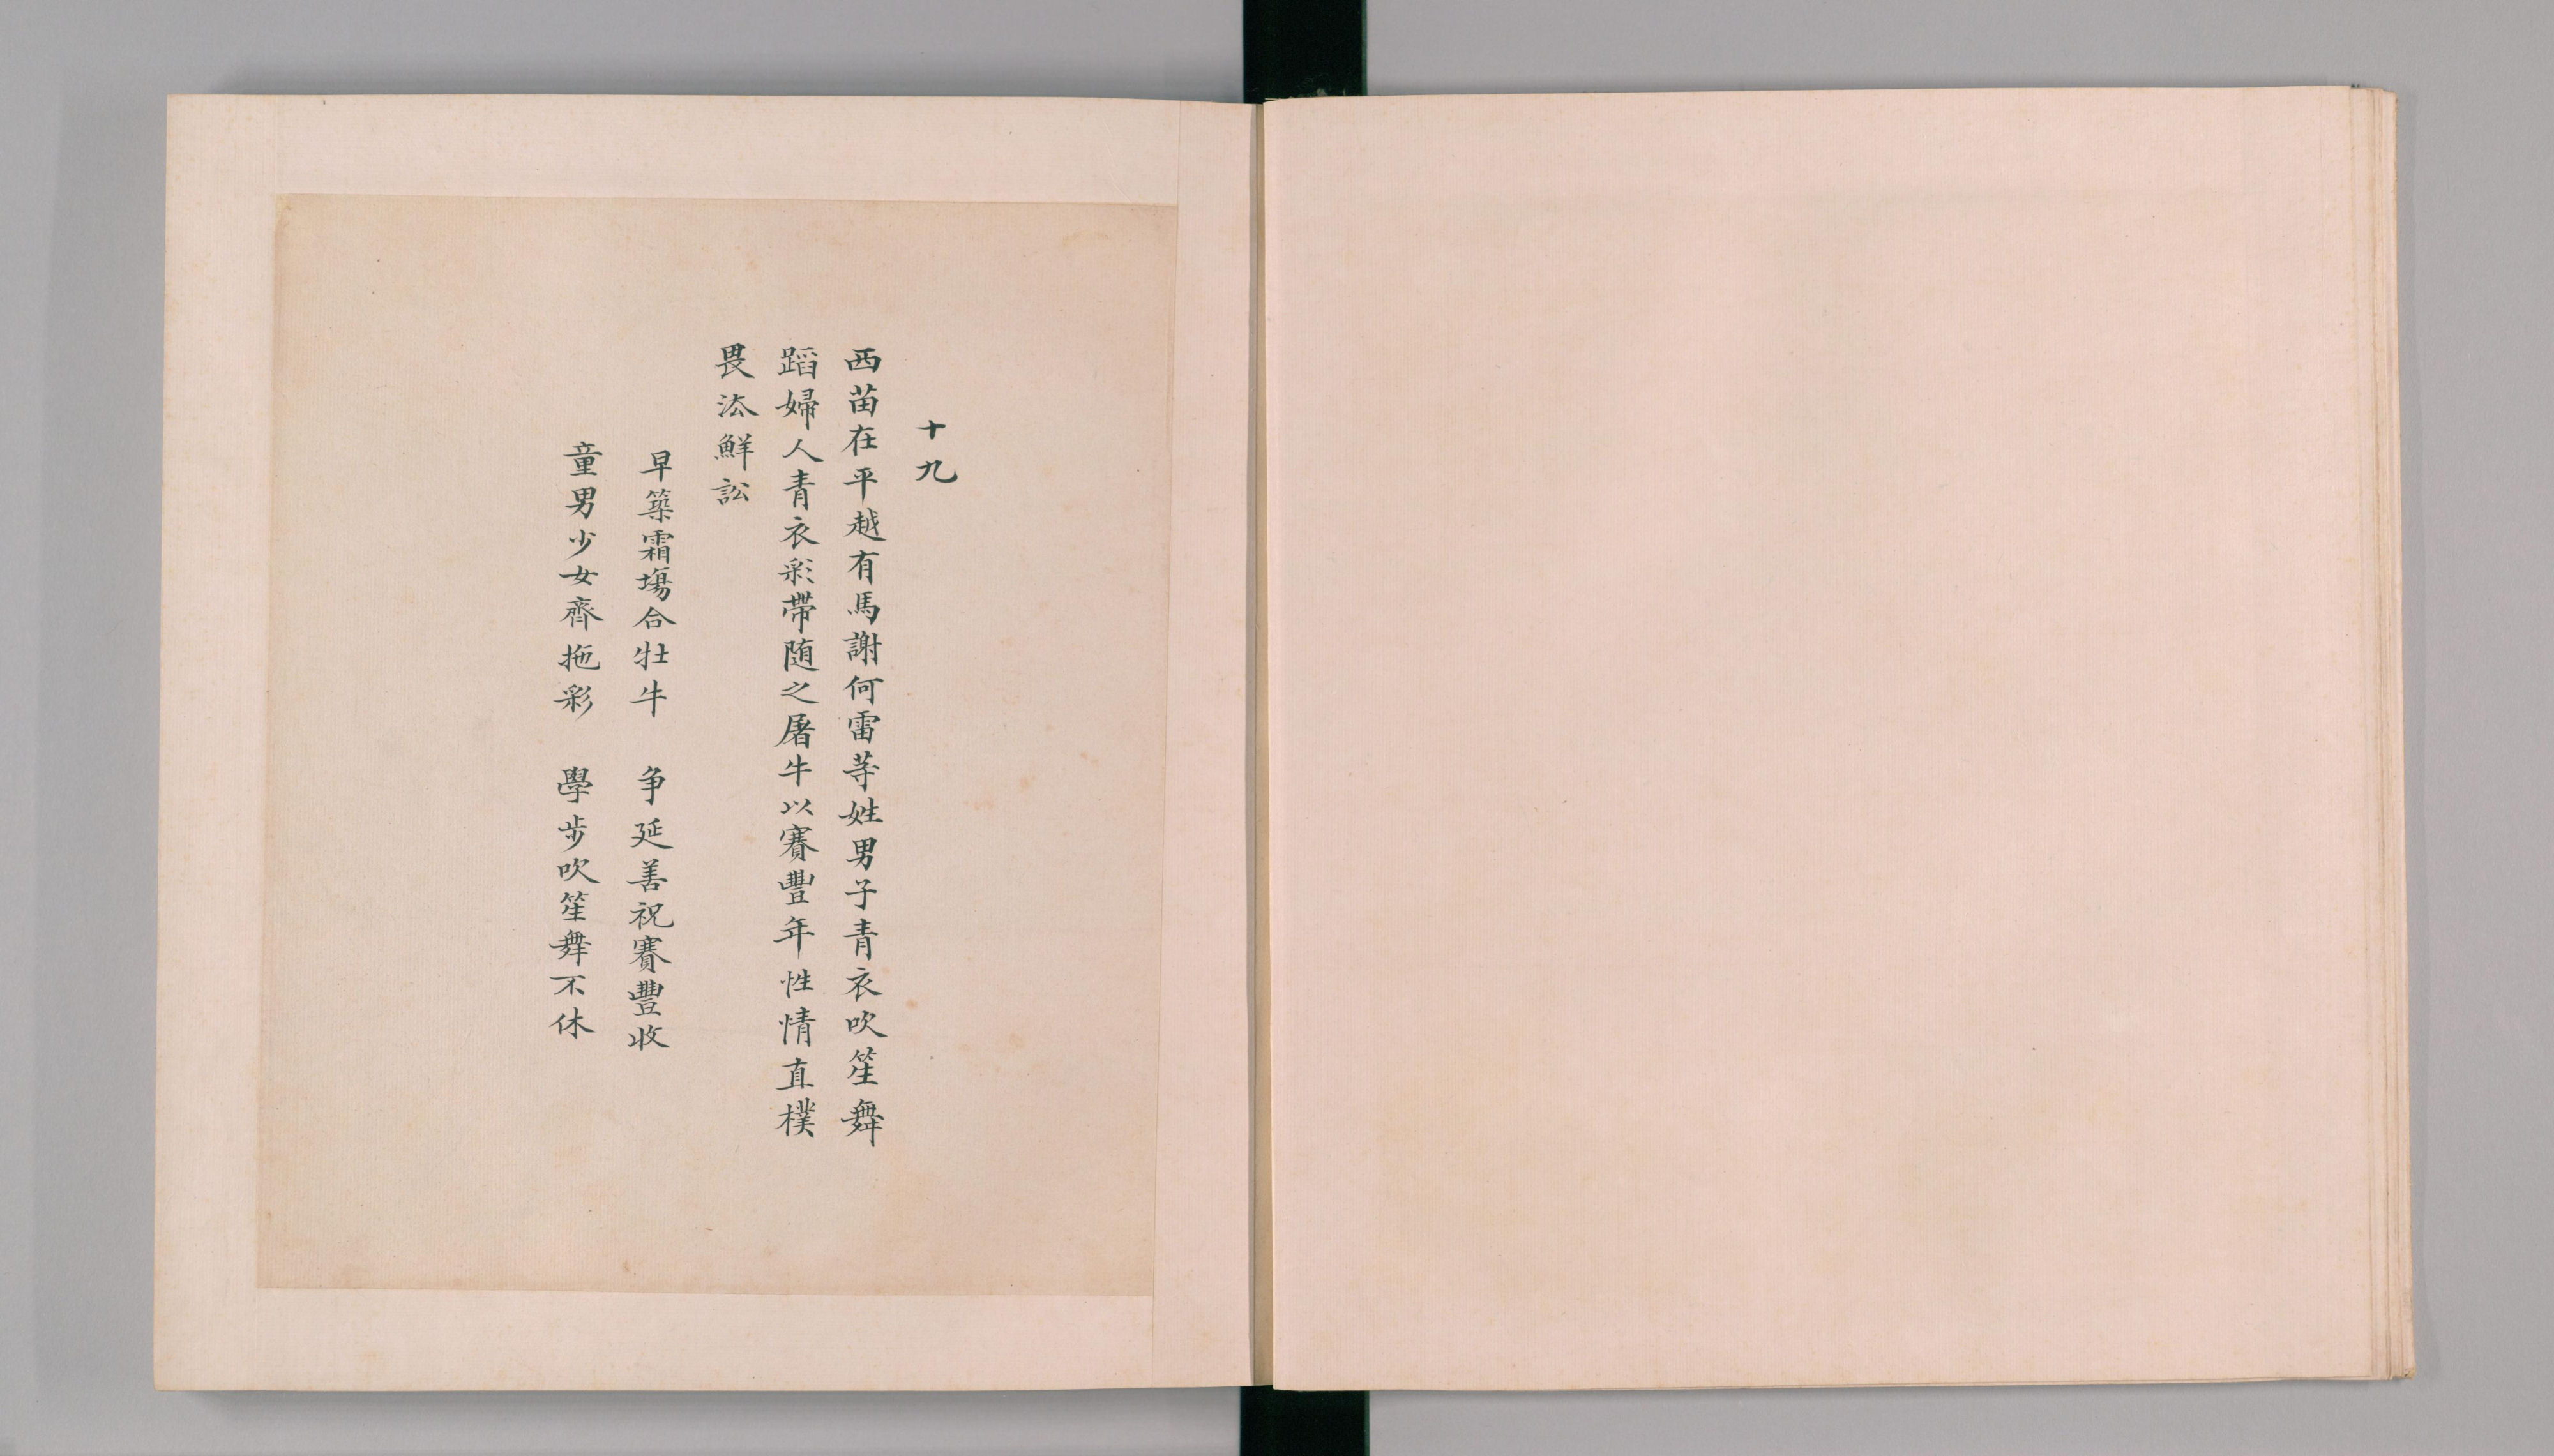 十九
西苗在平越有馬謝何雷等姓男子青衣吹笙舞
蹈婦人青衣彩帶随之屠牛以賽豐年性情直樸
畏法鮮訟
早築霜塲合牡牛　争延善祝賽豐收
童男少女齊拖彩　學步吹笙舞不休